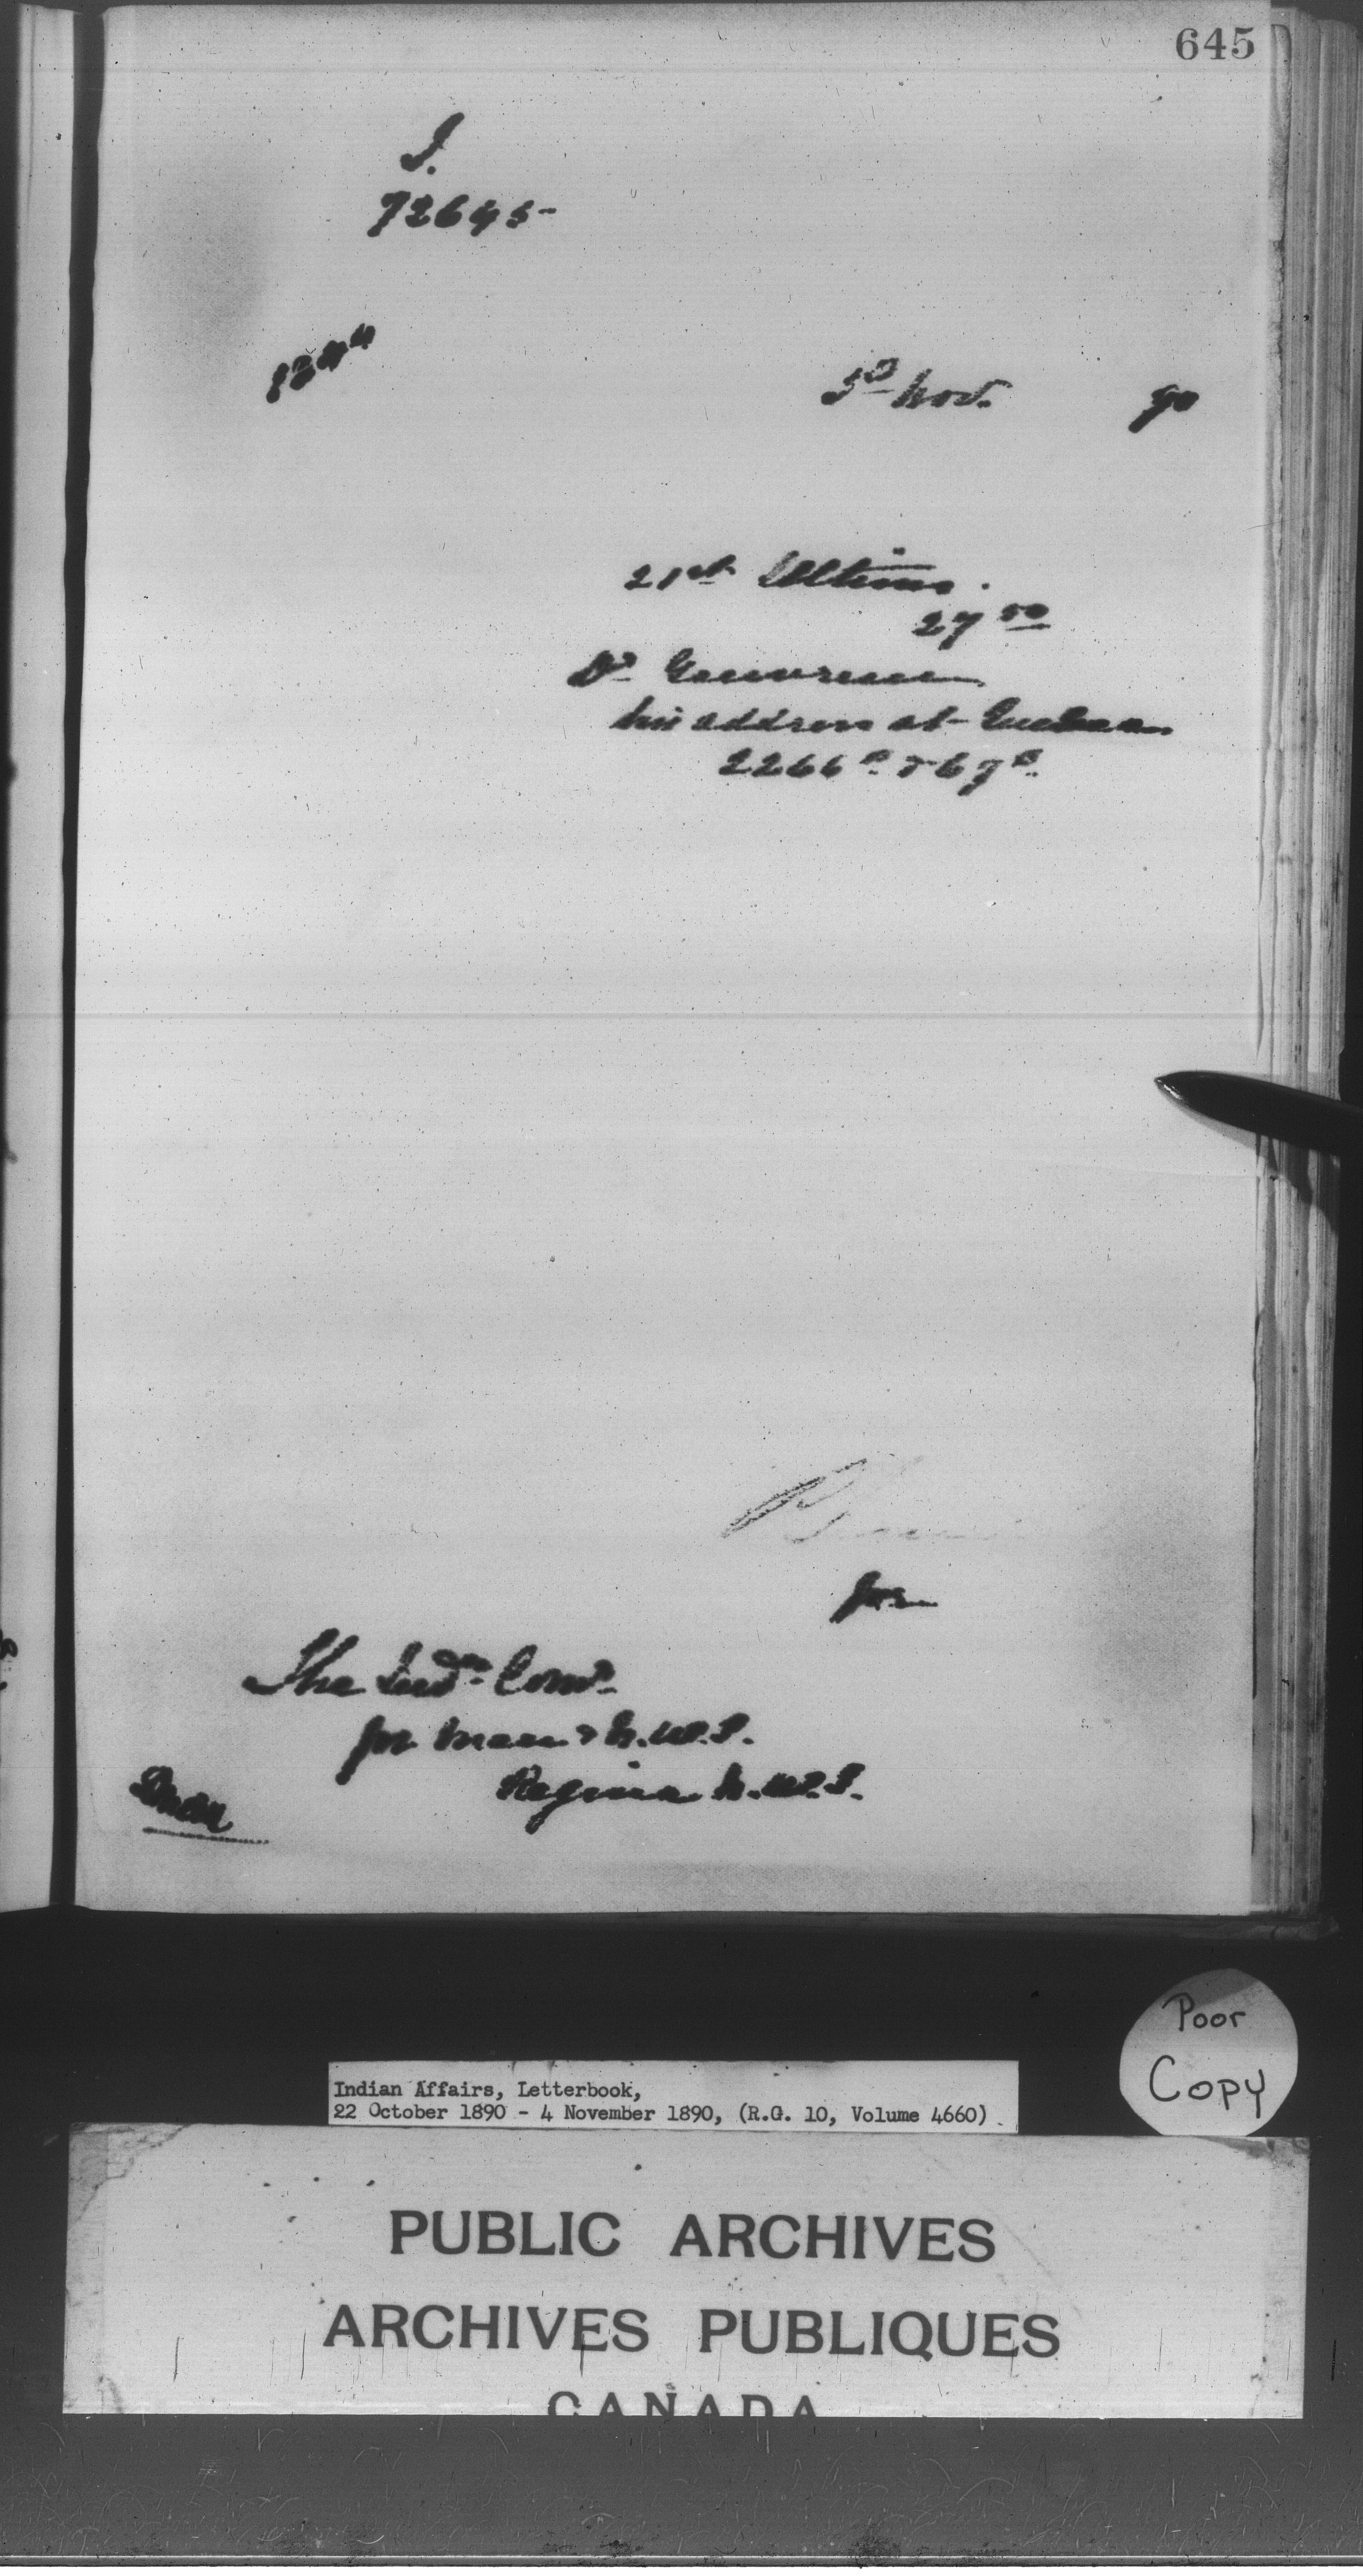 645
J.
72645-
3ᴰ Nov. 90
21st Ultimo.
27 50
Dr
his address at
2266
for
The Indn Comr
for Man & N.W.T.
Regina N.W.T.
Poor
Copy
Indian Affairs, Letterbook,
22 October 1890 - 4 November 1890, (R.G. 10, Volume 4660)
PUBLIC ARCHIVES
ARCHIVES PUBLIQUES
CANADA